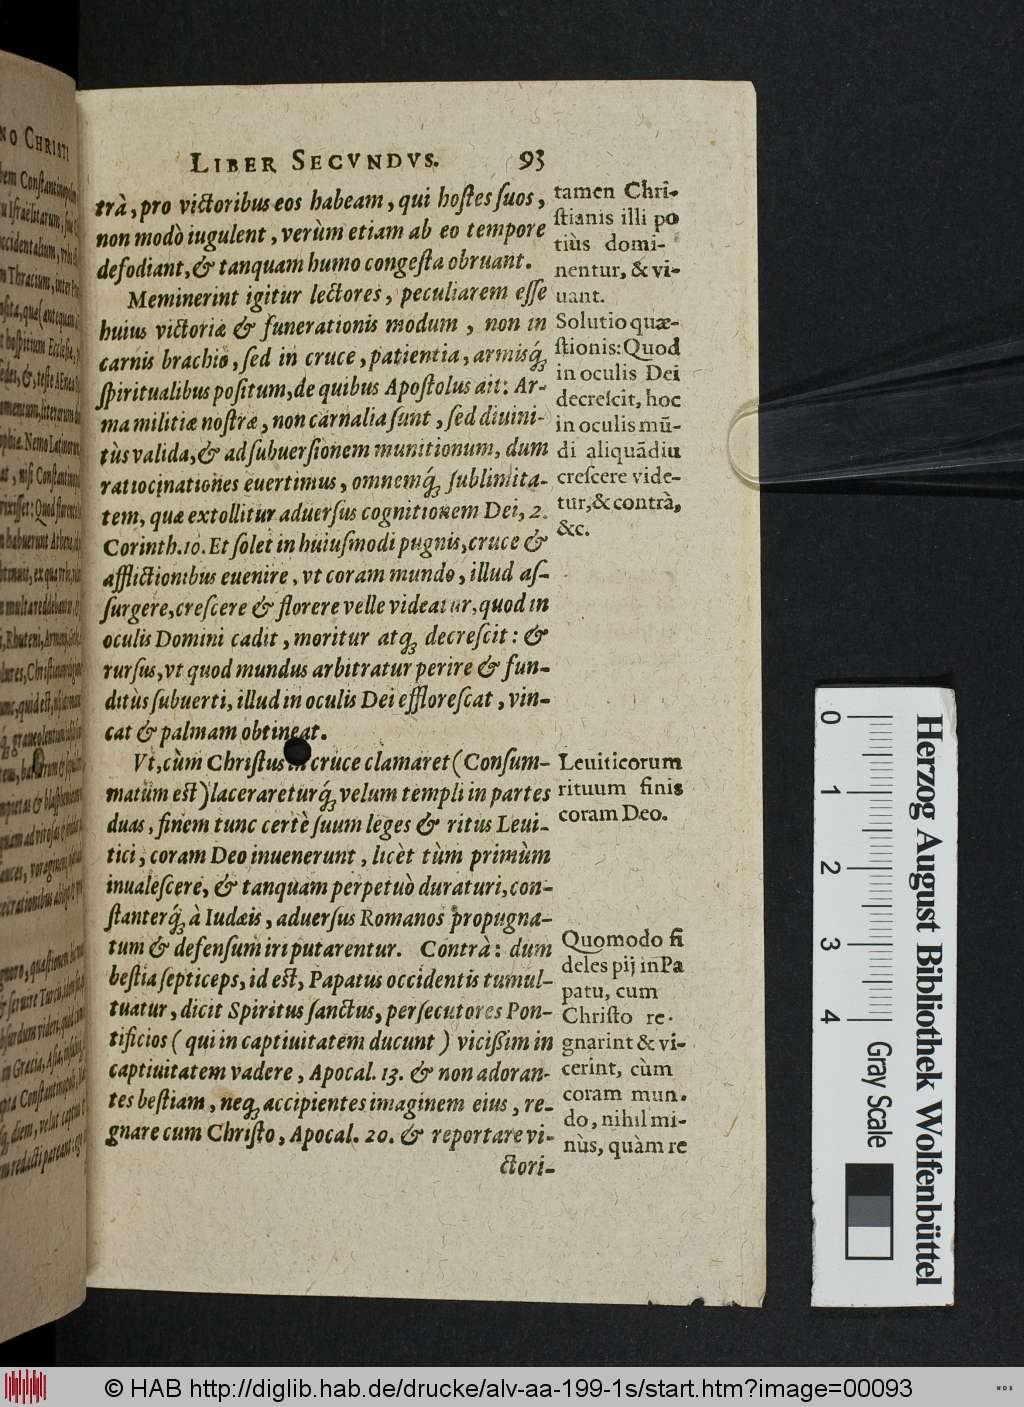 LIBER SECVNDVS. 93
trà, pro victoribus eos habeam, qui hostes suos,
non modò iugulent, verùm etiam ab eo tempore
defodiant, & tanquam humo congesta obruant.
Meminerint igitur lectores, peculiarem esse
huius victoriæ & funerationis modum, non in
carnis brachio, sed in cruce, patientia, armisq́;
spiritualibus positum, de quibus Apostolus ait: Ar-
ma militiæ nostræ, non carnalia sunt, sed diuini-
tùs valida, & ad subuersionem munitionum, dum
ratiocinationes euertimus, omnemq́; sublimita-
tem, quæ extollitur aduersus cognitionem Dei, 2.
Corinth. 10. Et solet in huiusmodi pugnis, cruce &
afflictionibus euenire, vt coram mundo, illud as-
surgere, crescere & florere velle videatur, quod in
oculis Domini cadit, moritur atq; decrescit: &
rursus, vt quod mundus arbitratur perire & fun-
ditùs subuerti, illud in oculis Dei efflorescat, vin-
cat & palmam obtineat.
Vt, cùm Christus in cruce clamaret (Consum-
matum est) lacerareturq́; velum templi in partes
duas, finem tunc certè suum leges & ritus Leui-
tici, coram Deo inuenerunt, licèt tùm primùm
inualescere, & tanquam perpetuò duraturi, con-
stanterq́; à Iudæis, aduersus Romanos propugna-
tum & defensum iri putarentur. Contrà: dum
bestia septiceps, id est, Papatus occidentis tumul-
tuatur, dicit Spiritus sanctus, persecutores Pon-
tificios (qui in captiuitatem ducunt) vicissim in
captiuitatem vadere, Apocal. 13. & non adoran-
tes bestiam, neq; accipientes imaginem eius, re-
gnare cum Christo, Apocal. 20. & reportare vi-
ctori-
tamen Chri-
stianis illi po
tiùs domi-
nentur, & vi-
uant.
Solutio quæ-
stionis: Quod
in oculis Dei
decrescit, hoc
in oculis mũ-
di aliquãdiu
crescere vide-
tur, & contrà,
&c.
Leuiticorum
rituum finis
coram Deo.
Quomodo fi
deles pij in Pa
patu, cum
Christo re-
gnarint & vi-
cerint, cùm
coram mun-
do, nihil mi-
nùs, quàm re
NO CHRISTI
0
1
2
3
4
Herzog August Bibliothek Wolfenbüttel
Gray Scale
© HAB http://diglib.hab.de/drucke/alv-aa-199-1s/start.htm?image=00093